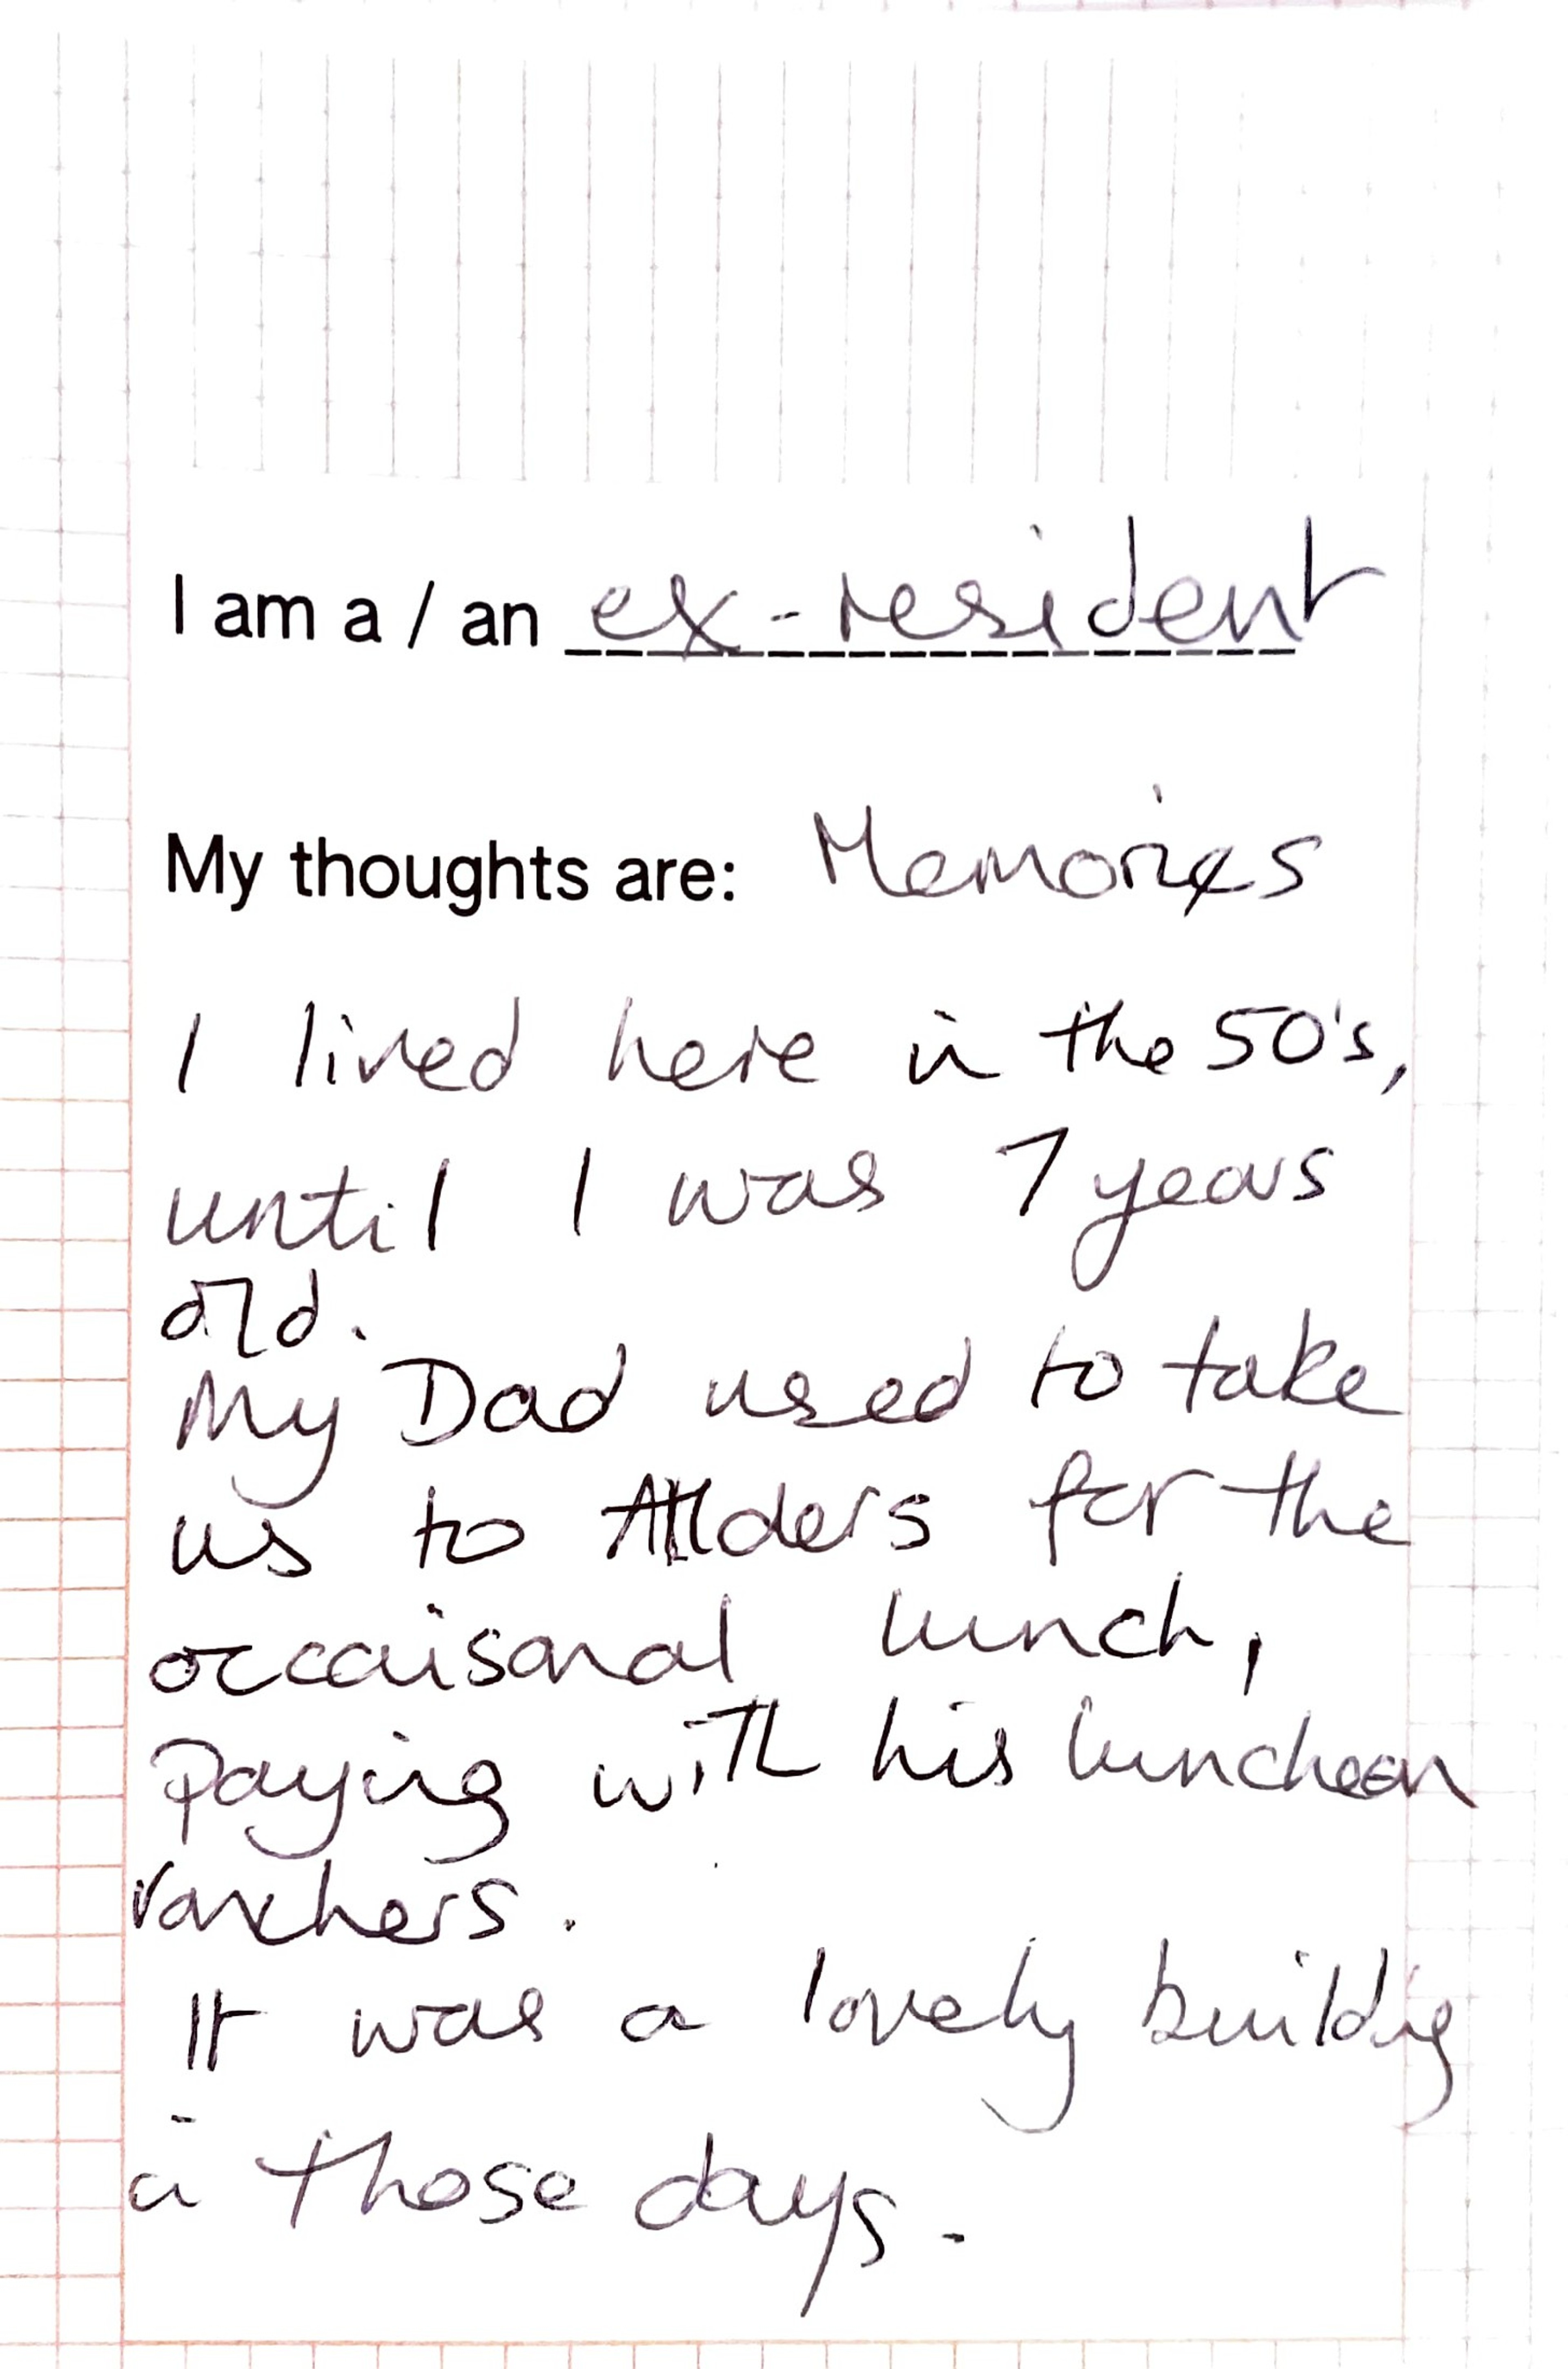 I am a / an ex-resident
My thoughts are: Memories
I lived here in the 50's,
until I was 7 years
old.
My Dad used to take
us to Allders for the
occaisonal lunch,
paying with his luncheon
vouchers.
It was a lovely building
in those days.